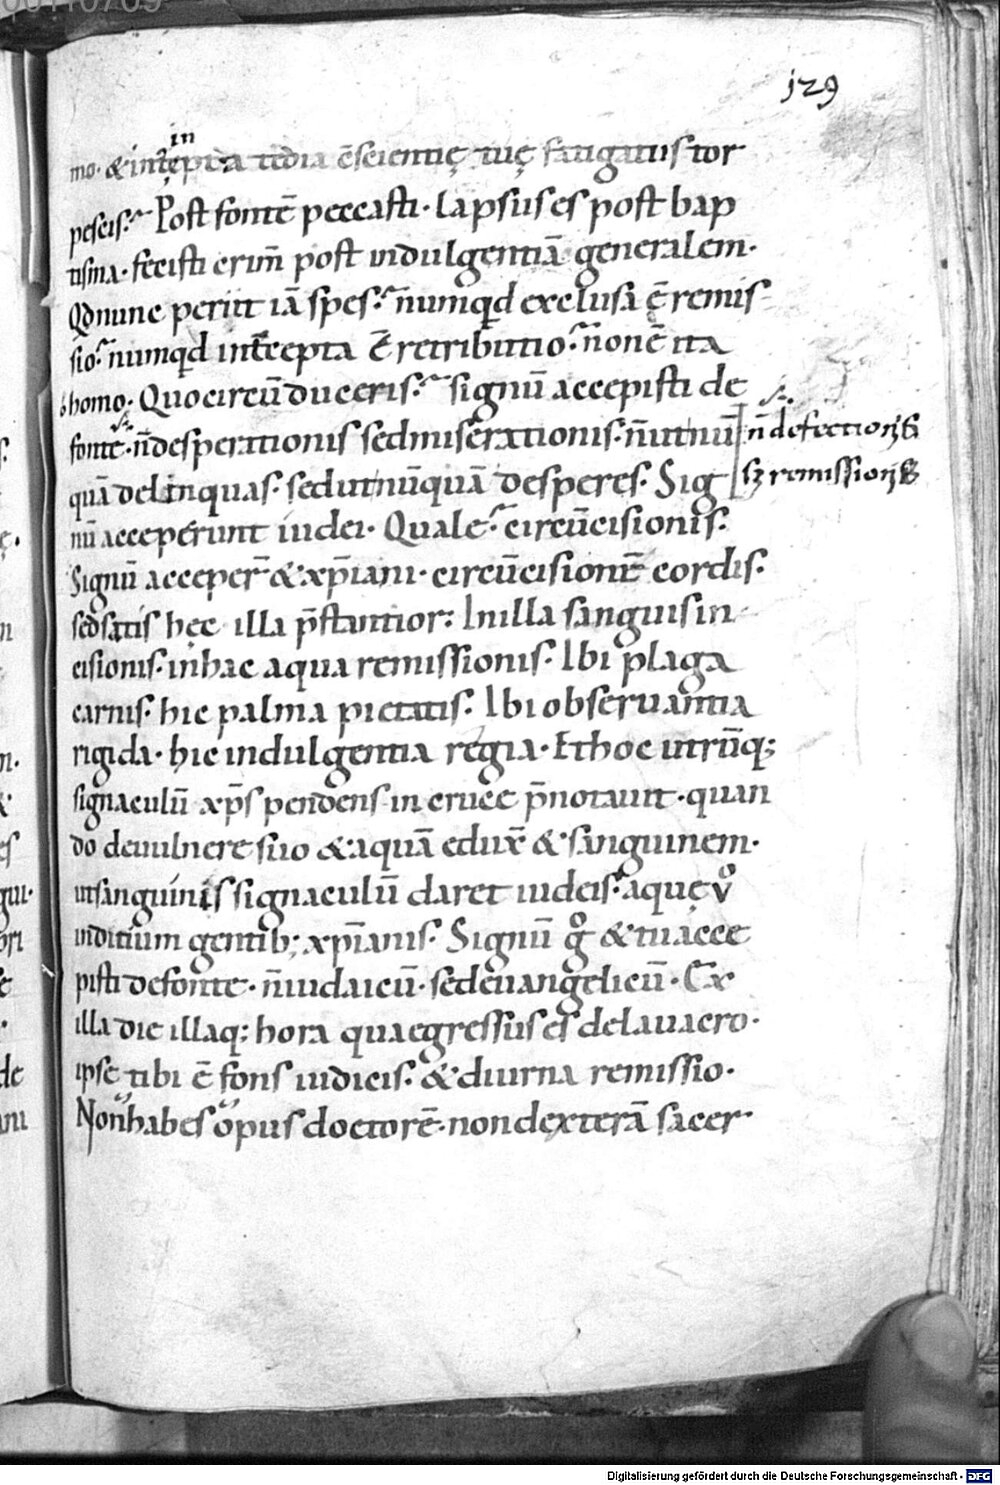 129
in
mo. & int̄ęp̄ta tedia c̄scientię tuę fatigatus tor
pescis. Post fontē peccasti. lapsus es post bap
tisma. fecisti crim̄ post indulgentiā generalem.
Qđ nunc periit iā spes. numqđ exclusa ē remis
sio. numqđ int̄cepta ē retributio. non ē ita
o homo. Quo circūduceris. signū accepisti de
fonte. n̄ desperationis sed miserationis. n̄ ut nū
n̄ defectionis
quā delinquas. sed ut nūquā desperes. Sig
sȝ remissionis
nū acceperunt iudei. Quale. circūcisionis.
Signū acceper̄ & xp̄iani. circūcisionē cordis.
sed satis hęc illa p̄stantior. In illa sanguis in
cisionis. in hac aqua remissionis. Ibi plaga
carnis. hic palma pietatis. Ibi observantia
rigida. hic indulgentia regia. Et hoc utrūq;
signaculū xp̄s pendens in cruce p̄notavit. quan
do de vulnere suo & aquā edux̄ & sanguinem.
ut sanguinis signaculū daret iudeis. aquę v̊
inditium gentib; xp̄ianis. Signū g̊ & tu acce
pisti de fonte. n̄ iudaicū. sed evangelicū. Ex
illa die illaq; hora qua egressus es de lavacro.
ipse tibi ē fons iudicis. & diurna remissio.
Non habes opus doctorē. non dexterā sacer
Digitalisierung gefördert durch die Deutsche Forschungsgemeinschaft - DFG